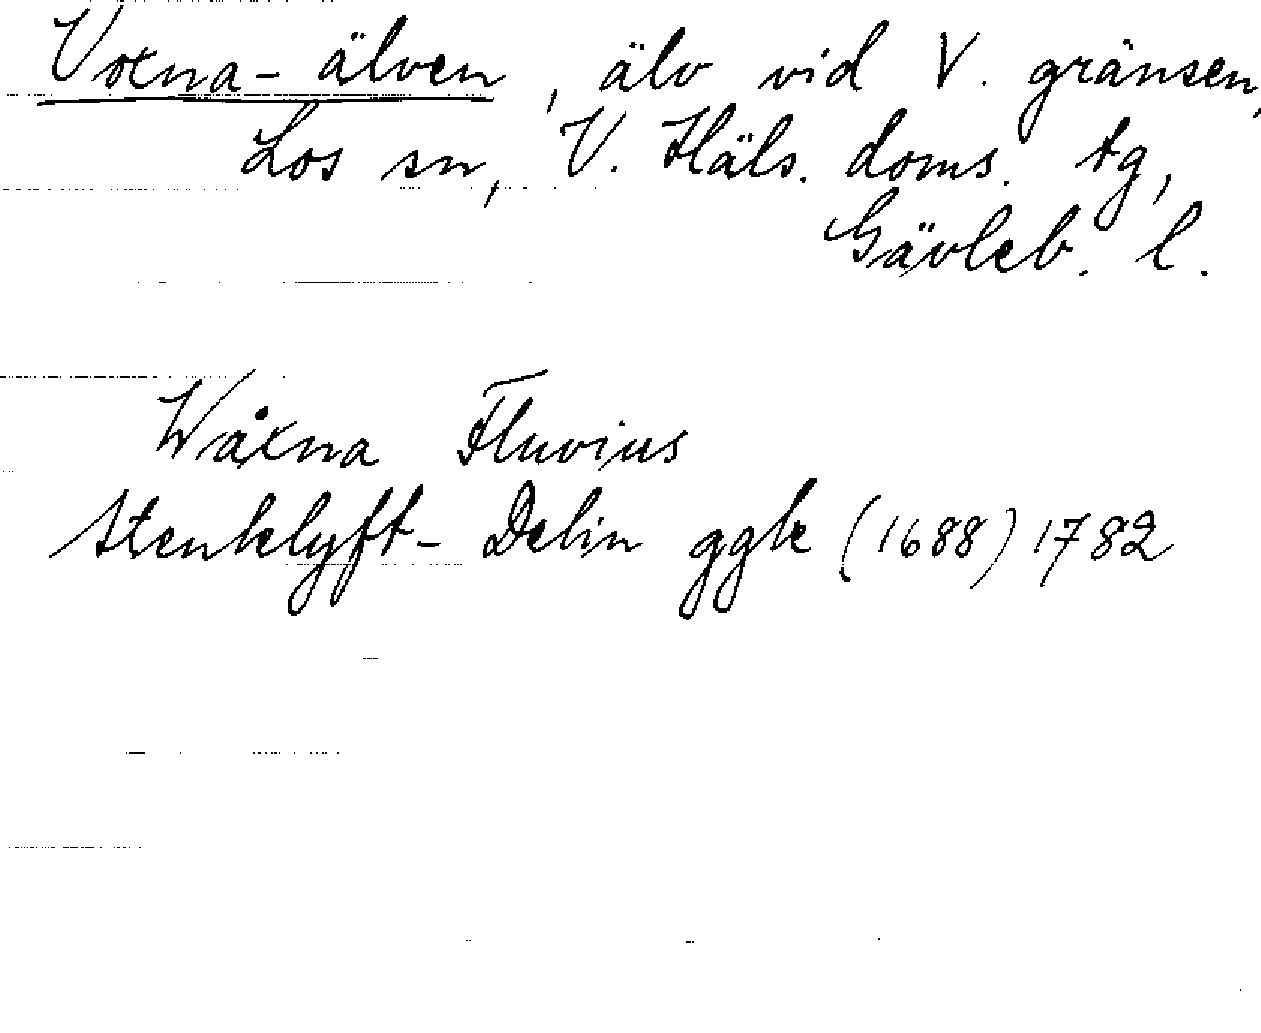 Voxna-älven, älv vid V. gränsen,
Los sn, V. Häls. doms. tg,
Gävleb. l.
Wåxna Fluvius
Stenklyft- Delin ggk (1688) 1782